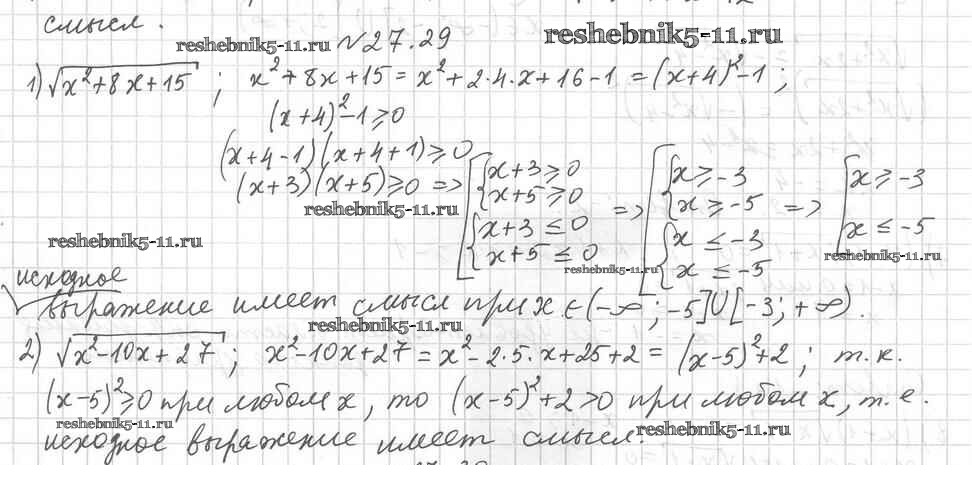 смысл.
reshebnik5-11.ru №27.29 reshebnik5-11.ru
1) √(x²+8x+15) ; x²+8x+15 = x²+2·4·x+16-1 = (x+4)²-1 ;
(x+4)²-1⩾0
(x+4-1)(x+4+1)⩾0
(x+3)(x+5)⩾0 => [ { x+3⩾0 x+5⩾0 { x+3≤0 x+5≤0 => [ { x⩾-3 x⩾-5 { x≤-3 x≤-5 => [ x⩾-3 x≤-5
reshebnik5-11.ru
reshebnik5-11.ru reshebnik5-11.ru reshebnik5-11.ru
исходное
выражение имеет смысл при x ∈ (-∞; -5]∪[-3; +∞).
reshebnik5-11.ru
2) √(x²-10x+27) ; x²-10x+27 = x²-2·5·x+25+2 = (x-5)²+2 ; т.к.
(x-5)²⩾0 при любом x, то (x-5)²+2>0 при любом x, т.е.
reshebnik5-11.ru
исходное выражение имеет смысл. reshebnik5-11.ru